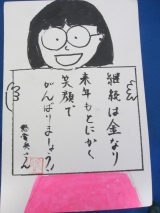 継続は金なり
来年もとにかく
笑顔で
がんばりましょう!